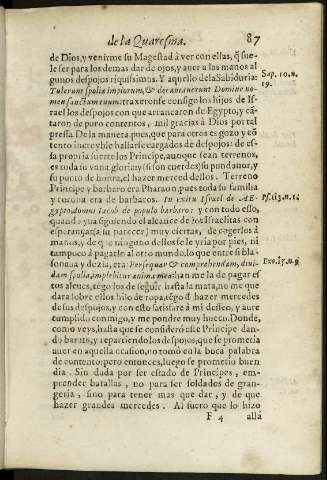 de la Quaresma. 87
de Dios, y venirme su Magestad à ver con ellas, q̃ sue-
le ser para los demas dar de ojos, y auer a las manos al
gunos despojos riquissimos. Y aquello de la Sabiduria:
Tulerunt spolia impiorum, & decantauerunt Domine no-
men sanctum tuum: traxeronse consigo los hijos de Is-
rael los despojos con que arrancaron de Egypto, y cã-
taron de puro contentos, mil gracias à Dios por tal
pressa. De la manera pues, que para otros es gozo y cõ
tento increyble hallarse cargados de despojos: de es-
sa propria suerte los Principe, aunque sean terrenos,
es toda su vana gloria (y si son cuerdos) su pundonor, y
su punto de honra, el hazer merced dellos. Terreno
Principe y barbaro era Pharaon, pues toda su familia
y corona era de barbaros. In exitu Israel de AE-
gypto domus Iacob de populo barbaro: y con todo esso,
quando yua siguiendo el alcance de los Israelitas con
esperanças (a su parecer) muy ciertas, de cogerlos à
manos, y de que ninguno dellos se le yria por pies, ni
tampoco à pagarle al otro mundo, lo que entre si bla-
sonaua y dezia, era: Persequar & comprehendam, diui-
dam spolia, implebitur anima mea: han me la de pagar es
tos aleues, tẽgo los de seguir hasta la mata, no me que
dara sobre ellos hilo de ropa, tẽgo d̃ hazer mercedes
de sus despojos, y con esto satisfare à mi desseo, y aure
cumplido conmigo, y me pondre muy hueco. Donde,
como veys, hasta que se consideró este Principe dan-
do barato, y repartiendo los despojos, que se prometia
auer en aquella ocasion, no tomò en la boca palabra
de contento: pero entonces, luego se prometio buen
dia. Sin duda por ser estado de Principes, em-
prender batallas, no para ser soldados de gran-
geria, sino para tener mas que dar, y de que
hazer grandes mercedes. Al fuero que lo hizo
F 4 allà
Sap. 10. n.
19.
Ps. 113. n. 1.
Exo. 15. n. 9